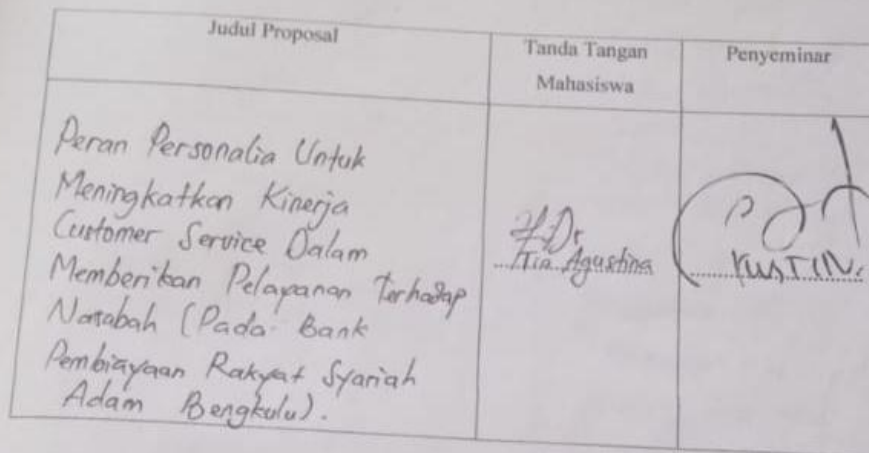 Judul Proposal
Tanda Tangan
Mahasiswa
Penyeminar
Peran Personalia Untuk
Meningkatkan Kinerja
Customer Service Dalam
Memberikan Pelayanan Terhadap
Nasabah (Pada Bank
Pembiayaan Rakyat Syariah
Adam Bengkulu).
Tia Agustina